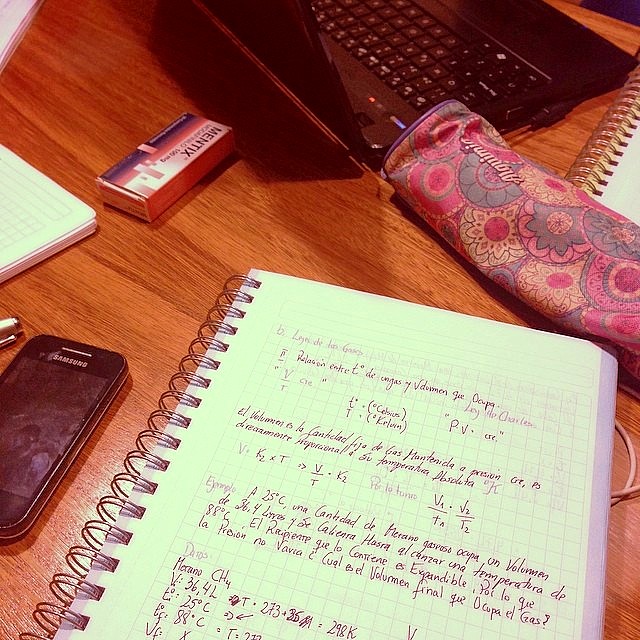 MENTIX
SAMSUNG
b. Leyes de los Gases
Relación entre t° de un gas y Volumen que Ocupa.
" V cte "
T
Ley de Charles
t : (°Celsius)
T : (°Kelvin)
" P V = cte "
el Volumen es la Cantidad fija de Gas Mantenida a presión cte, es
directamente Proporcional a su temperatura Absoluta °K
V = K2 x T => V/T = K2
Por lo tanto
V1/T1 = V2/T2
Ejemplo: A 25°C, una Cantidad de Metano gaseoso ocupa un Volumen
de 36,4 Litros y se Calienta Hasta alcanzar una temperatura de
88°C. El Recipiente que lo Contiene es Expandible, Por lo que
la Presión no Varía ¿ Cual es el Volumen final que Ocupa el Gas?
Datos:
Metano CH4
Vi: 36,4 L
ti: 25°C => T: 273+25 = 298K
tf: 88°C => T: 273
Vf: X
V